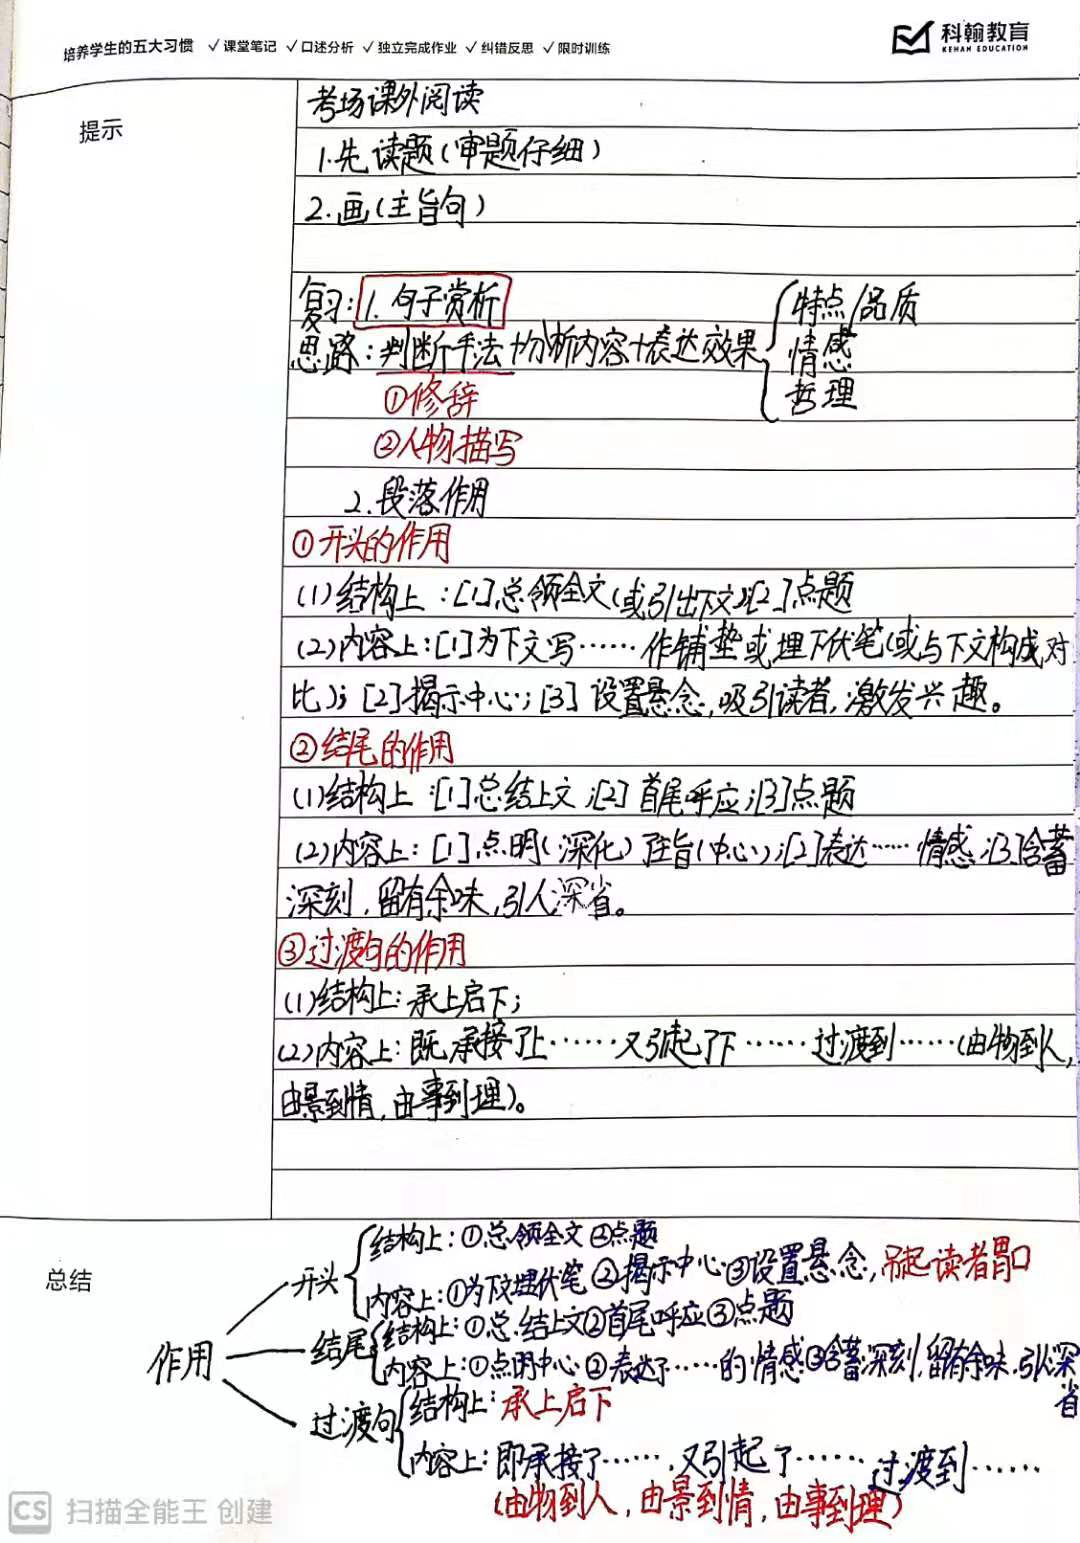 培养学生的五大习惯 ✓课堂笔记 ✓口述分析 ✓独立完成作业 ✓纠错反思 ✓限时训练
科翰教育
KEHAN EDUCATION
提示
考场课外阅读
1.先读题(审题仔细)
2.画(主旨句)
复习:1.句子赏析
思路:判断手法+分析内容+表达效果
特点/品质
情感
哲理
①修辞
②人物描写
2.段落作用
①开头的作用
(1)结构上:[1]总领全文(或引出下文);[2]点题
(2)内容上:[1]为下文写……作铺垫或埋下伏笔(或与下文构成对
比);[2]揭示中心;[3]设置悬念,吸引读者,激发兴趣。
②结尾的作用
(1)结构上:[1]总结上文;[2]首尾呼应;[3]点题
(2)内容上:[1]点明(深化)主旨(中心);[2]表达……情感;[3]含蓄
深刻,留有余味,引人深省。
③过渡句的作用
(1)结构上:承上启下;
(2)内容上:既承接了上……又引起了下……过渡到……(由物到人,
由景到情,由事到理)。
总结
作用
开头
结构上:①总领全文②点题
内容上:①为下文埋伏笔②揭示中心③设置悬念,吊起读者胃口
结尾
结构上:①总结上文②首尾呼应③点题
内容上:①点明中心②表达了……的情感③含蓄深刻,留有余味,引人深
省
过渡句
结构上:承上启下
内容上:即承接了……,又引起了……过渡到……
(由物到人,由景到情,由事到理)
CS 扫描全能王 创建